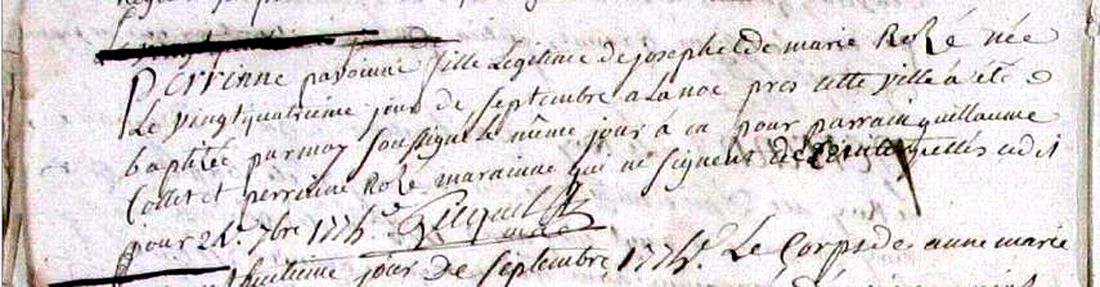 perrinne paroinne fille Legitime de joseph et de marie Rozé née
Le vingtquatrieme jour de septembre a La noe pres cette ville a été
baptisée par moy soussigné le même jour à eu pour parrain guillaume
Collet et perrinne Rozé marainne qui ne signent de ce interpellés cedit
jour 24e 7bre 1774
huitieme jour de septembre 1774 Le Corps de anne marie